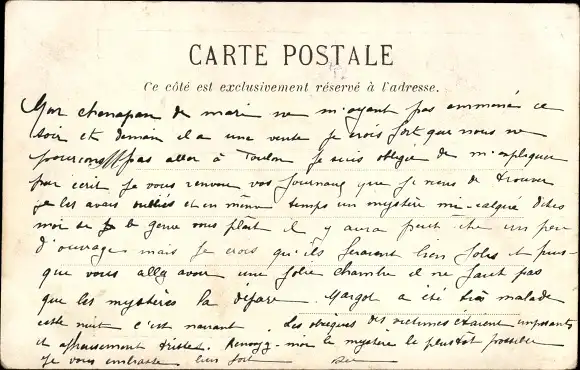 CARTE POSTALE
Ce côté est exclusivement réservé à l'adresse.
Mon chenapan de mari ne m'ayant pas emmenée ce
soir et demain il a une vente je crois fort que nous ne
pourrons pas aller à Toulon je suis obligée de m'expliquer
par écrit je vous renvoie vos journaux que je viens de trouver
je les avais oubliés et en même temps un mystère mi-calqué dites
moi si le genre vous plait il y aura peut être un peu
d'ouvrage mais je crois qu'ils seraient bien jolis et puis-
que vous allez avoir une jolie chambre il ne faut pas
que les mystères la dépare. Margot a été très malade
cette nuit c'est navrant. Les obsèques des victimes étaient imposants
et affreusement tristes. Renvoyez-moi le mystère le plus tôt possible
Je vous embrasse bien fort